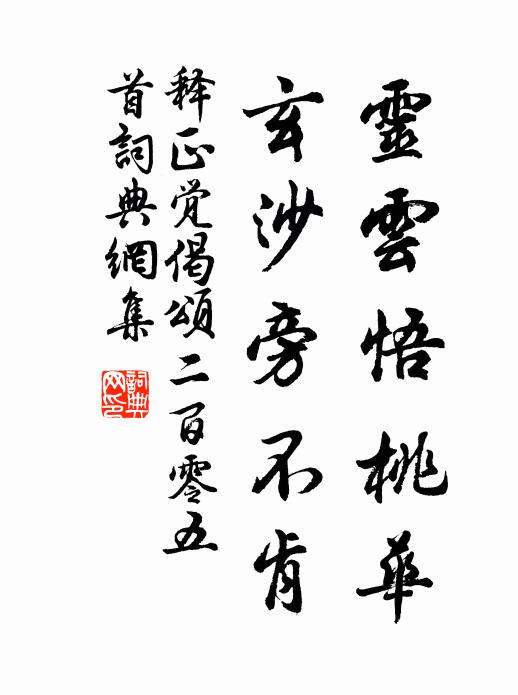 靈雲悟桃華
玄沙旁不肯
释正覚偈頌二百零五
首詞典網集
詞典
网印